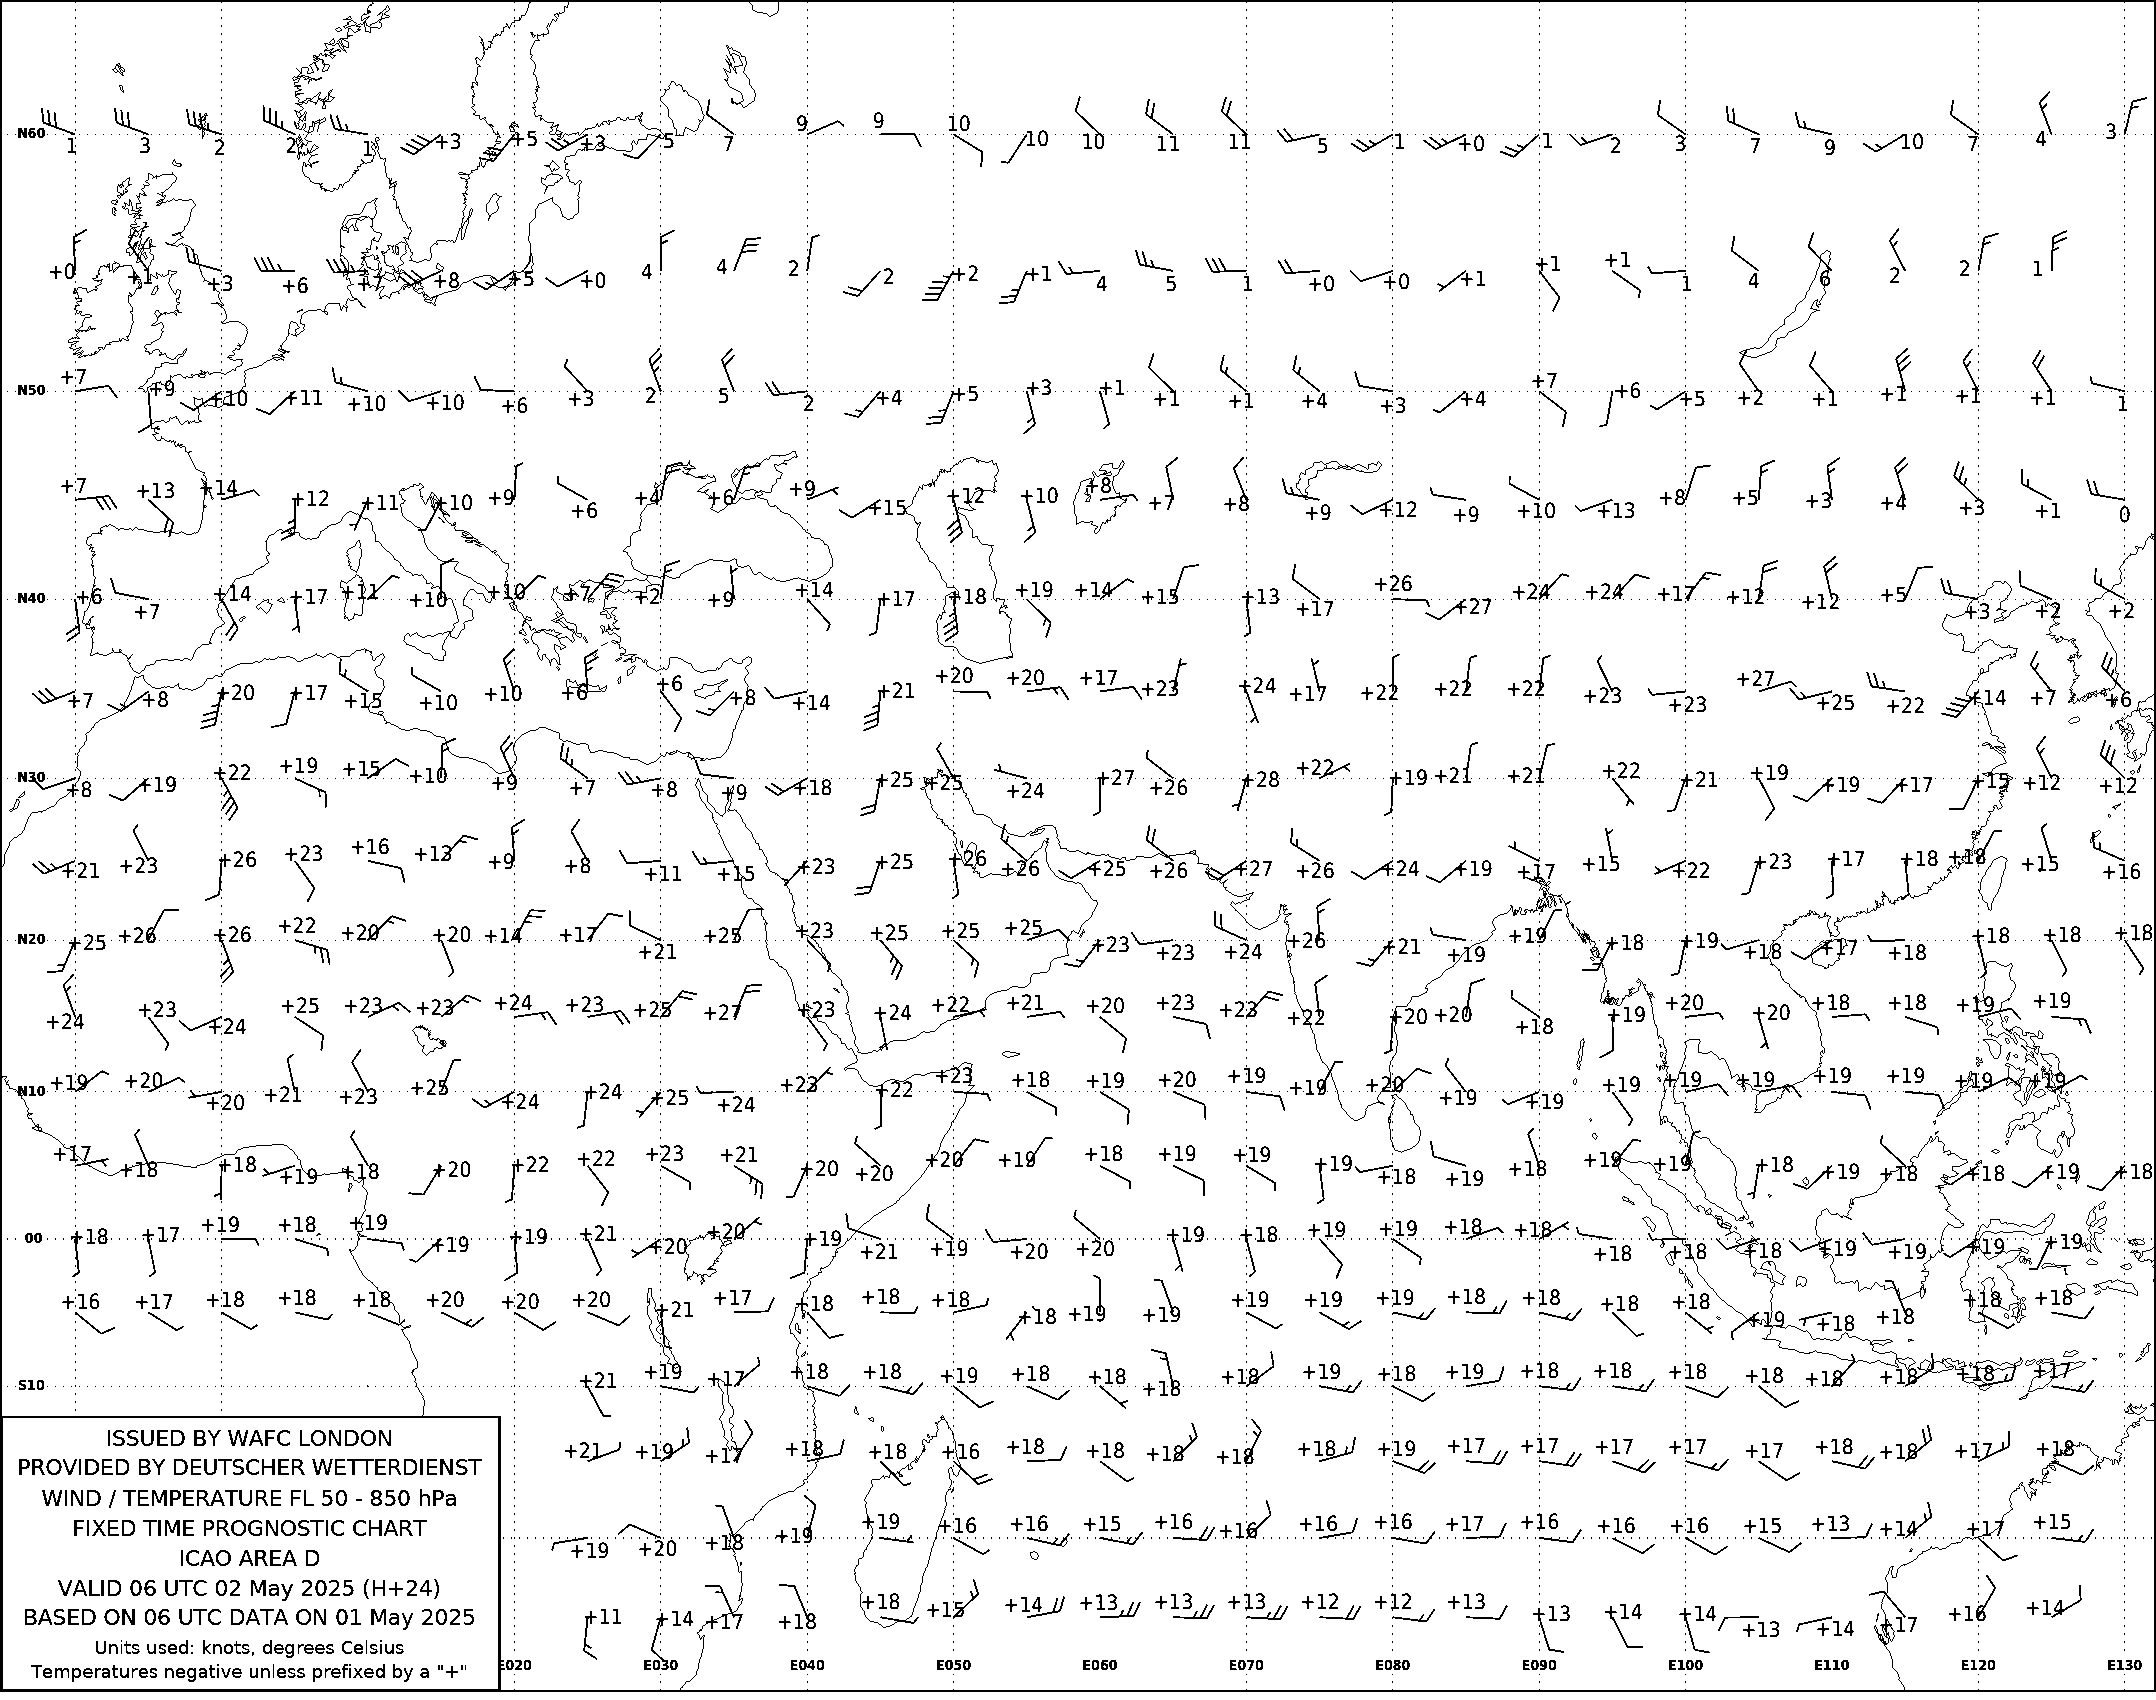 N60 1 3 2 2 1 +3 +5 +3 5 7 9 9 10 10 10 11 11 5 1 +0 1 2 3 7 9 10 7 4 3
+0 +1 +3 +6 +7 +8 +5 +0 4 4 2 2 +2 +1 4 5 1 +0 +0 +1 +1 +1 1 4 6 2 2 1
N50 +7 +9 +10 +11 +10 +10 +6 +3 2 5 2 +4 +5 +3 +1 +1 +1 +4 +3 +4 +7 +6 +5 +2 +1 +1 +1 +1 1
+7 +13 +14 +12 +11 +10 +9 +6 +4 +6 +9 +15 +12 +10 +8 +7 +8 +9 +12 +9 +10 +13 +8 +5 +3 +4 +3 +1 0
N40 +6 +7 +14 +17 +11 +10 +10 +7 +2 +9 +14 +17 +18 +19 +14 +15 +13 +17 +26 +27 +24 +24 +17 +12 +12 +5 +3 +2 +2
+7 +8 +20 +17 +15 +10 +10 +6 +6 +8 +14 +21 +20 +20 +17 +23 +24 +17 +22 +22 +22 +23 +23 +27 +25 +22 +14 +7 +6
N30 +8 +19 +22 +19 +15 +10 +9 +7 +8 +9 +18 +25 +25 +24 +27 +26 +28 +22 +19 +21 +21 +22 +21 +19 +19 +17 +15 +12 +12
+21 +23 +26 +23 +16 +13 +9 +8 +11 +15 +23 +25 +26 +26 +25 +26 +27 +26 +24 +19 +17 +15 +22 +23 +17 +18 +18 +15 +16
N20 +25 +26 +26 +22 +20 +20 +14 +17 +21 +25 +23 +25 +25 +25 +23 +23 +24 +26 +21 +19 +19 +18 +19 +18 +17 +18 +18 +18 +18
+24 +23 +24 +25 +23 +23 +24 +23 +25 +27 +23 +24 +22 +21 +20 +23 +23 +22 +20 +20 +18 +19 +20 +20 +18 +18 +19 +19
N10 +19 +20 +20 +21 +23 +25 +24 +24 +25 +24 +23 +22 +23 +18 +19 +20 +19 +19 +20 +19 +19 +19 +19 +19 +19 +19 +19 +19
+17 +18 +18 +19 +18 +20 +22 +22 +23 +21 +20 +20 +20 +19 +18 +19 +19 +19 +18 +19 +18 +19 +19 +18 +19 +18 +18 +19 +18
00 +18 +17 +19 +18 +19 +19 +19 +21 +20 +20 +19 +21 +19 +20 +20 +19 +18 +19 +19 +18 +18 +18 +18 +18 +19 +19 +19 +19
+16 +17 +18 +18 +18 +20 +20 +20 +21 +17 +18 +18 +18 +18 +19 +19 +19 +19 +19 +18 +18 +18 +18 +19 +18 +18 +18 +18
S10 +21 +19 +17 +18 +18 +19 +18 +18 +18 +18 +19 +18 +19 +18 +18 +18 +18 +18 +18 +18 +17
+21 +19 +17 +18 +18 +16 +18 +18 +18 +18 +18 +19 +17 +17 +17 +17 +17 +18 +18 +17 +18
+19 +20 +18 +19 +19 +16 +16 +15 +16 +16 +16 +16 +17 +16 +16 +16 +15 +13 +14 +17 +15
+11 +14 +17 +18 +18 +15 +14 +13 +13 +13 +12 +12 +13 +13 +14 +14 +13 +14 +17 +16 +14
E020 E030 E040 E050 E060 E070 E080 E090 E100 E110 E120 E130
ISSUED BY WAFC LONDON
PROVIDED BY DEUTSCHER WETTERDIENST
WIND / TEMPERATURE FL 50 - 850 hPa
FIXED TIME PROGNOSTIC CHART
ICAO AREA D
VALID 06 UTC 02 May 2025 (H+24)
BASED ON 06 UTC DATA ON 01 May 2025
Units used: knots, degrees Celsius
Temperatures negative unless prefixed by a "+"